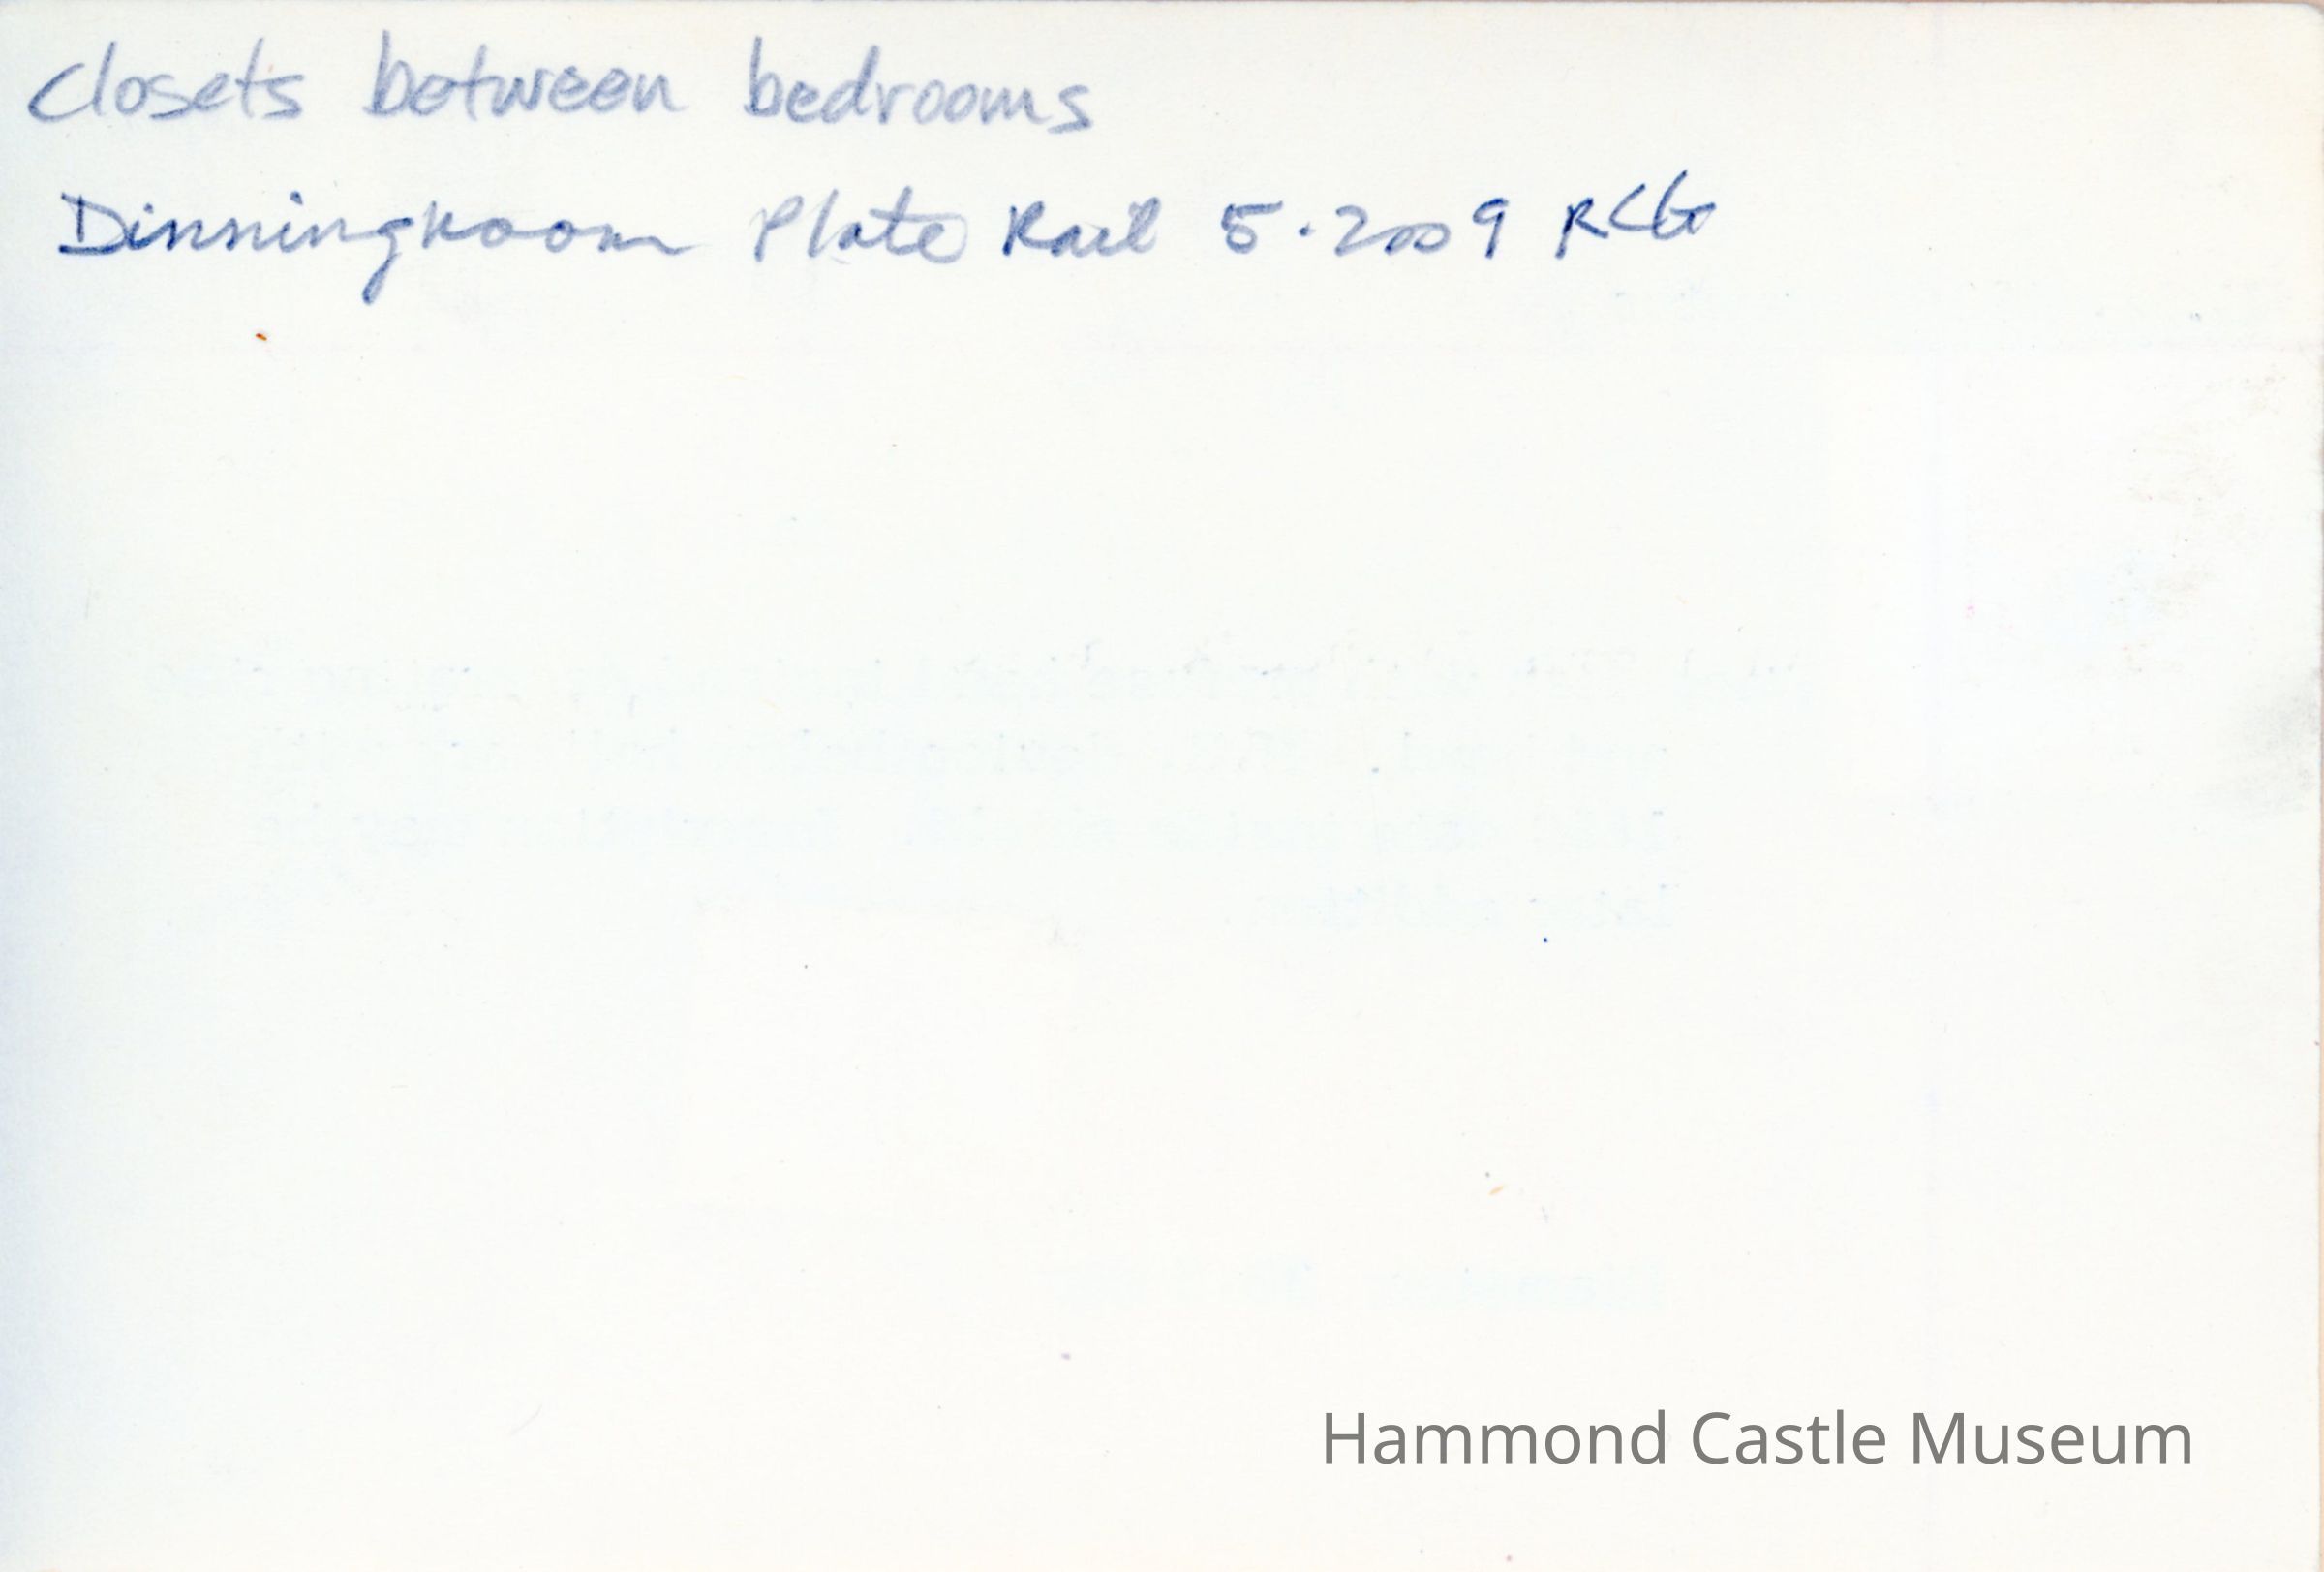 Closets between bedrooms
Dinningroom Plate Rail 5.2009 RCG
Hammond Castle Museum